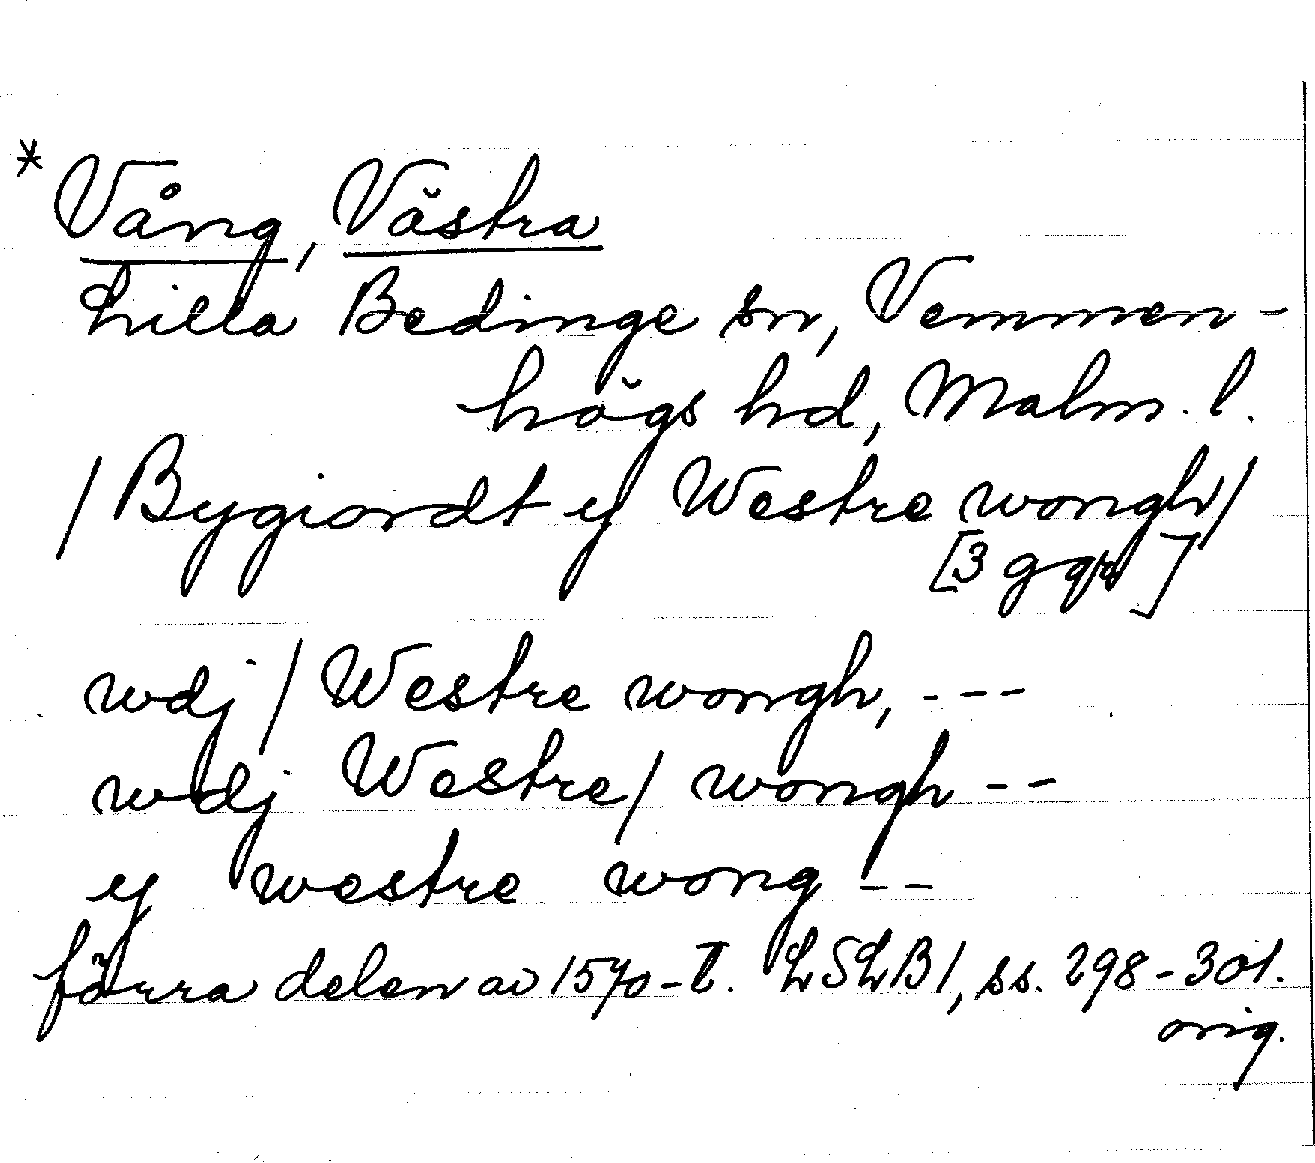 * Vång, Västra
Lilla Bedinge sn, Vemmen-
högs hd, Malm. l.
/ Bygiordt y Westre wongh /
[3 ggr]
wdj / Westre wongh, - - - -
wdj Westre / wongh - - -
y westre wong - -
förra delen av 1570-t. LSLB1, ss. 298-301.
orig.